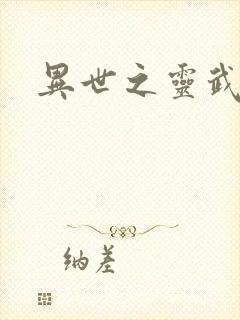 異世之靈武
纳差